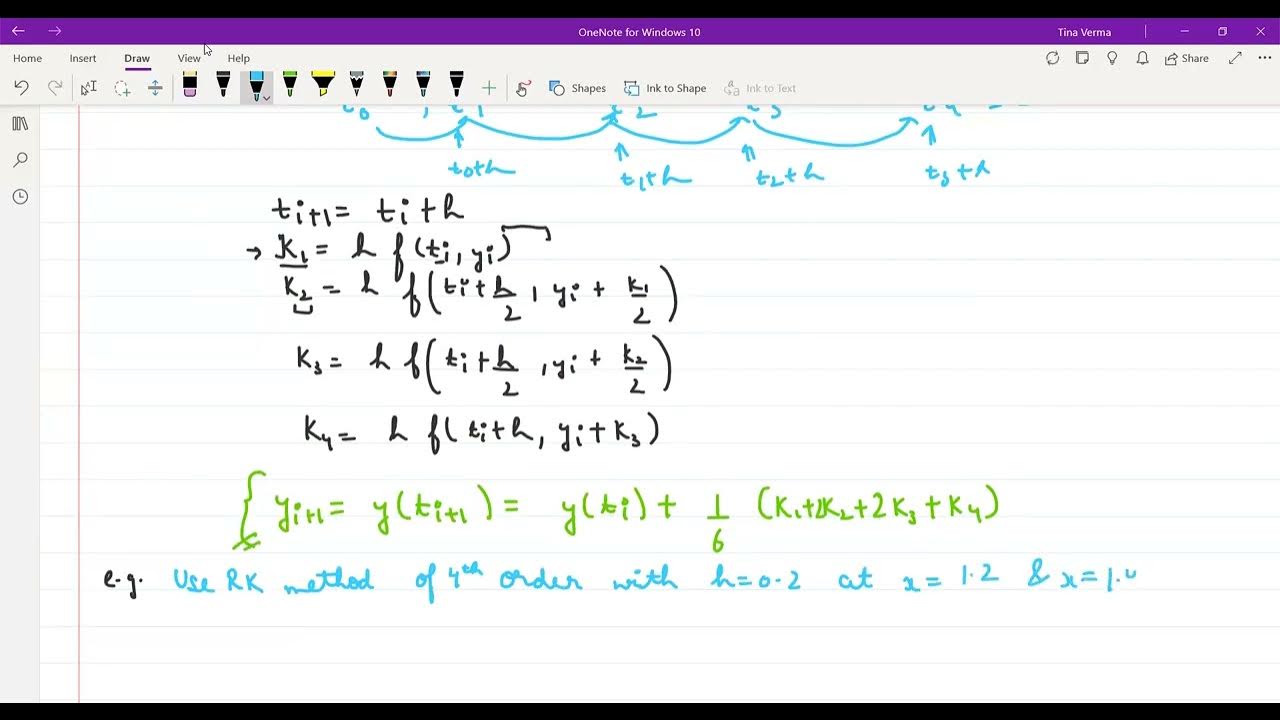 OneNote for Windows 10
Tina Verma
Home Insert Draw View Help
Share
Shapes Ink to Shape Ink to Text
t₀ , t₁ t₂ t₃ t₄
t₀+h t₁+h t₂+h t₃+h
tᵢ₊₁ = tᵢ + h
→ K₁ = h f(tᵢ, yᵢ)
K₂ = h f(tᵢ + h/2 , yᵢ + K₁/2)
K₃ = h f(tᵢ + h/2 , yᵢ + K₂/2)
K₄ = h f(tᵢ + h, yᵢ + K₃)
yᵢ₊₁ = y(tᵢ₊₁) = y(tᵢ) + 1/6 (K₁+2K₂+2K₃+K₄)
e.g. Use RK method of 4th order with h=0.2 at x= 1.2 & x=1.